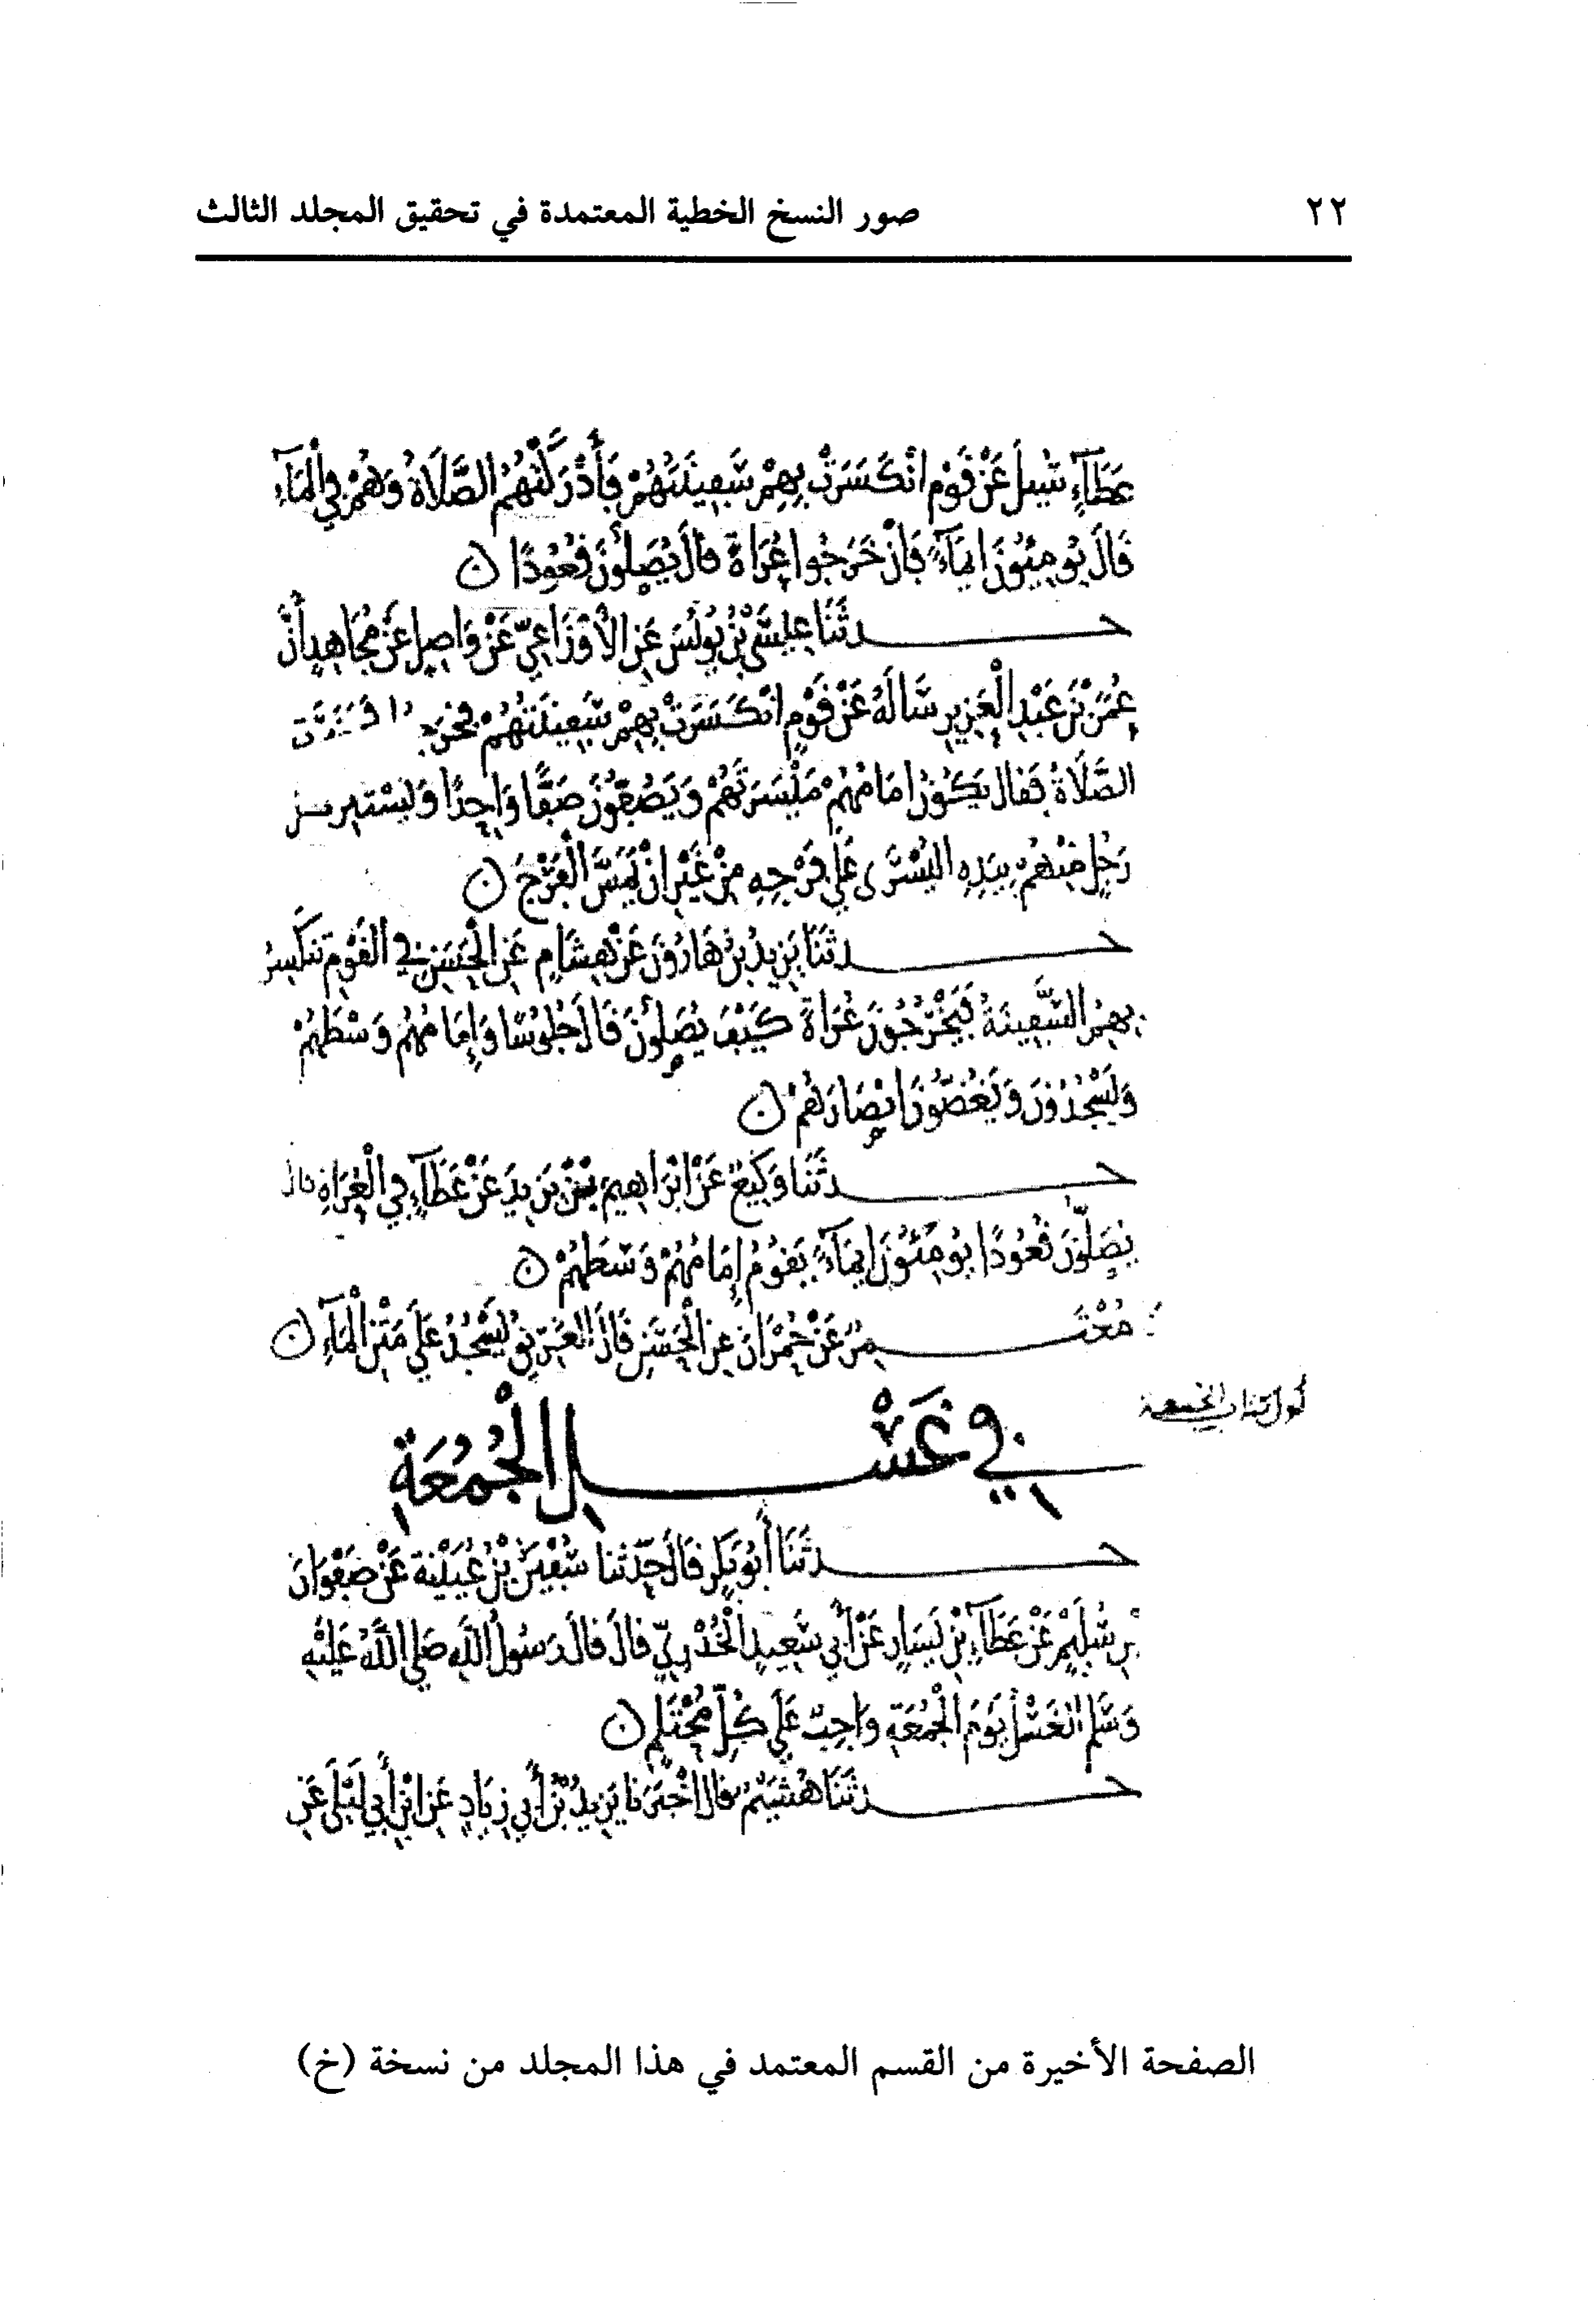 ٢٢ صور النسخ الخطية المعتمدة في تحقيق المجلد الثالث
عَطَآءٍ سُيِلَ عَنْ قَوْمٍ انْكَسَرَتْ بِهِمْ سَفِينَتُهُمْ فَأَدْرَكَتْهُمُ الصَّلَاةُ وَهُمْ فِي الْمَآءِ
قَالَ يُومِئُونَ اِيمَآءً فَاِنْ خَرَجُوا عُرَاةً قَالَ يُصَلُّونَ قُعُودًا ن
حدثَنَا عِيسَى بْنُ يُونُسَ عَنِ الْأَوْزَاعِيِّ عَنْ وَاصِلٍ عَنْ مُجَاهِدٍ أَنَّ
عُمَرَ بْنَ عَبْدِ الْعَزِيزِ سَالَهُ عَنْ قَوْمٍ انْكَسَرَتْ بِهِمْ سَفِينَتُهُمْ
الصَّلَاةُ فَقَالَ يَكُونُ اِمَامُهُمْ مَيْسَرَتَهُمْ وَيَصُفُّونَ صَفًّا وَاحِدًا وَيَسْتَتِر
رَجُلٍ مِنْهُمْ بِيَدِهِ الْيُسْرَى عَلَى فَرْجِهِ مِنْ غَيْرِ اَنْ يَمَسَّ الْفَرْجَ ن
حدثَنَا يَزِيدُ بْنُ هَارُونَ عَنْ هِشَامٍ عَنِ الْحَسَنِ فِي الْقَوْمِ تَنْكَسِرُ
بِهِمُ السَّفِينَةُ فَيَخْرُجُونَ عُرَاةً كَيْفَ يُصَلُّونَ قَالَ جُلُوسًا وَإِمَامُهُمْ وَسْطَهُمْ
وَيَسْجُدُونَ وَيَغُضُّونَ ابْصَارَهُمْ ن
حدثَنَا وَكِيعٌ عَنْ ابْرَاهِيمَ بْنِ يَزِيدَ عَنْ عَطَآءٍ فِي الْعُرَاةِ قال
يُصَلُّونَ قُعُودًا يُومِئُونَ اِيمَآءً يَقُومُ إِمَامُهُمْ وَسَطَهُمْ ن
مُعْتَمِرٌ عَنْ حُمْرَانَ عَنِ الْحَسَنِ قَالَ الْعُرْيَ يَسْجُدُ عَلَى مَتْنِ الْمَآءِ ن
اول كتاب الجمعة
فِي غَسْلِ الْجُمُعَةِ
حدثَنَا أَبُو بَكْرٍ قَالَ حَدّثنا سُفْيَنُ بْنُ عُيَيْنَة عَنْ صَفْوَانَ
بْنِ سُلَيْمٍ عَنْ عَطَآءِ بْنِ يَسَارٍ عَنْ أَبِي سَعِيدٍ الْخُدْرِيِّ قَالَ قَالَ رَسُولُ اللَّهِ صَلى اللَّهُ عَلَيْهِ
وَسَلم الْغَسْلُ يَوْمَ الْجُمُعَةِ وَاجِبٌ عَلَى كُلِّ مُحْتَلِمٍ ن
حدثَنَا هُشَيْمٌ قَالَ اخْبَرَنا يَزِيدُ بْنُ أَبِي زِيَادٍ عَنِ ابْنِ أَبِي لَيْلَى عَنِ
الصفحة الأخيرة من القسم المعتمد في هذا المجلد من نسخة (خ)